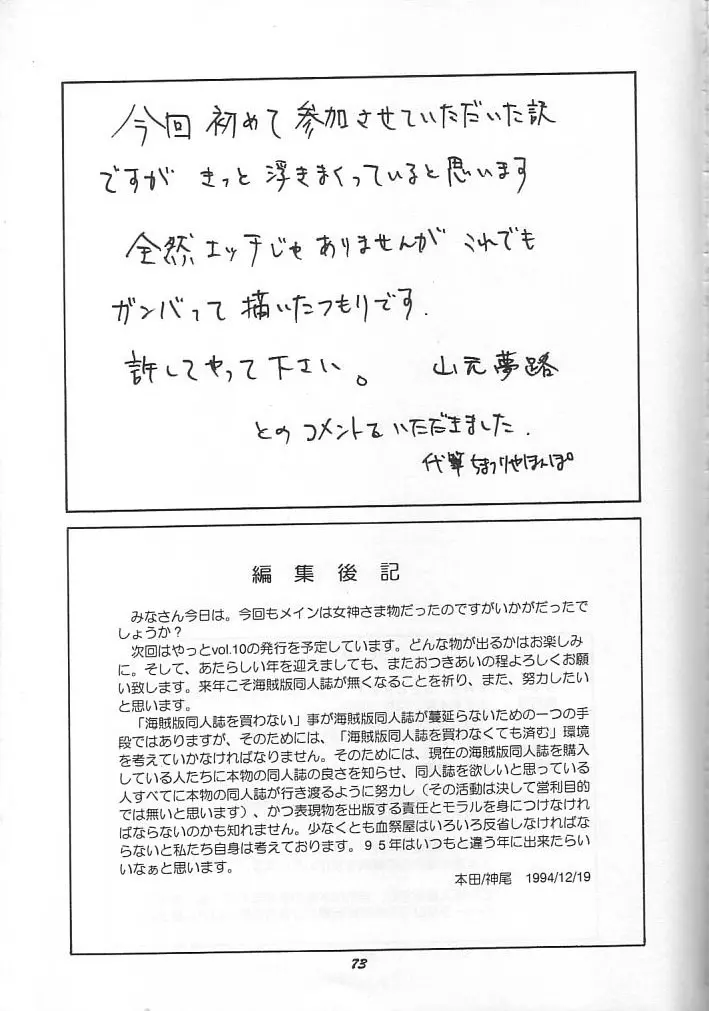 今回 初めて 参加させていただいた訳
ですが きっと 浮きまくっていると思います
全然 エッチじゃ ありませんが これでも
ガンバって 描いたつもりです.
許してやって下さい。 山元夢路
とのコメントを いただきました.
代筆 ちまつりやほんぽ
編集後記
みなさん今日は。今回もメインは女神さま物だったのですがいかがだったで
しょうか?
次回はやっとvol.10の発行を予定しています。どんな物が出るかはお楽しみ
に。そして、あたらしい年を迎えましても、またおつきあいの程よろしくお願
い致します。来年こそ海賊版同人誌が無くなることを祈り、また、努力したい
と思います。
「海賊版同人誌を買わない」事が海賊版同人誌が蔓延らないための一つの手
段ではありますが、そのためには、「海賊版同人誌を買わなくても済む」環境
を考えていかなければなりません。そのためには、現在の海賊版同人誌を購入
している人たちに本物の同人誌の良さを知らせ、同人誌を欲しいと思っている
人すべてに本物の同人誌が行き渡るように努力し(その活動は決して営利目的
では無いと思います)、かつ表現物を出版する責任とモラルを身につけなけれ
ばならないのかも知れません。少なくとも血祭屋はいろいろ反省しなければな
らないと私たち自身は考えております。95年はいつもと違う年に出来たらい
いなぁと思います。
本田/神尾 1994/12/19
73